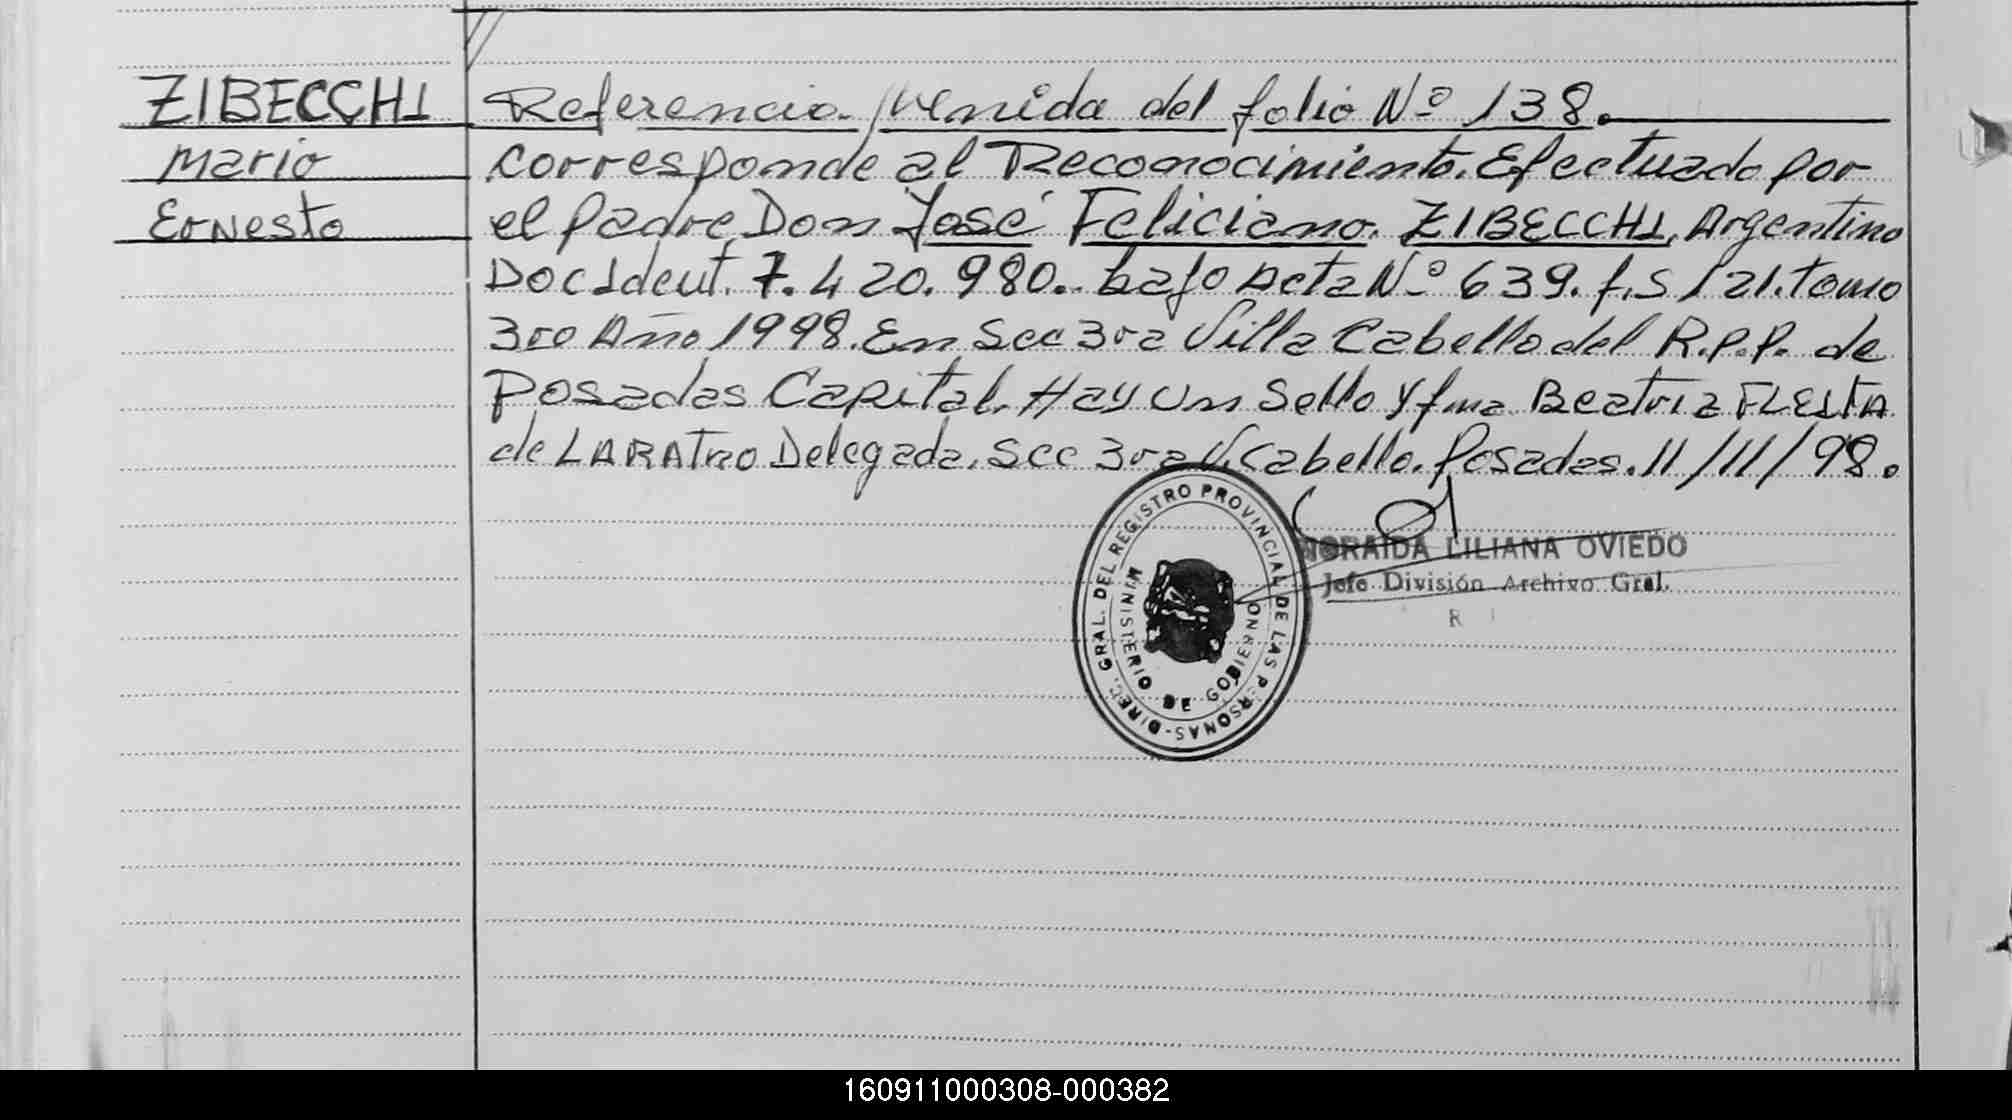 ZIBECCHI
Mario
Ernesto
Referencia. Venida del folio Nº 138.
Corresponde al Reconocimiento. Efectuado por
el padre, Don José Feliciano. ZIBECCHI, Argentino
Doc Ident. 7.420.980.. bajo Acta Nº 639. f.s 121. tomo
3ro Año 1998. En Sec 3ra Villa Cabello del R.P.P. de
Posadas Capital. Hay Un Sello y fma Beatriz
de Delegada. Sec 3ra V. Cabello. Posadas. 11/11/98.
DIREC. GRAL. DEL REGISTRO PROVINCIAL DE LAS PERSONAS -
MINISTERIO DE GOBIERNO
NORAIDA LILIANA OVIEDO
Jefe División Archivo Gral.
160911000308-000382